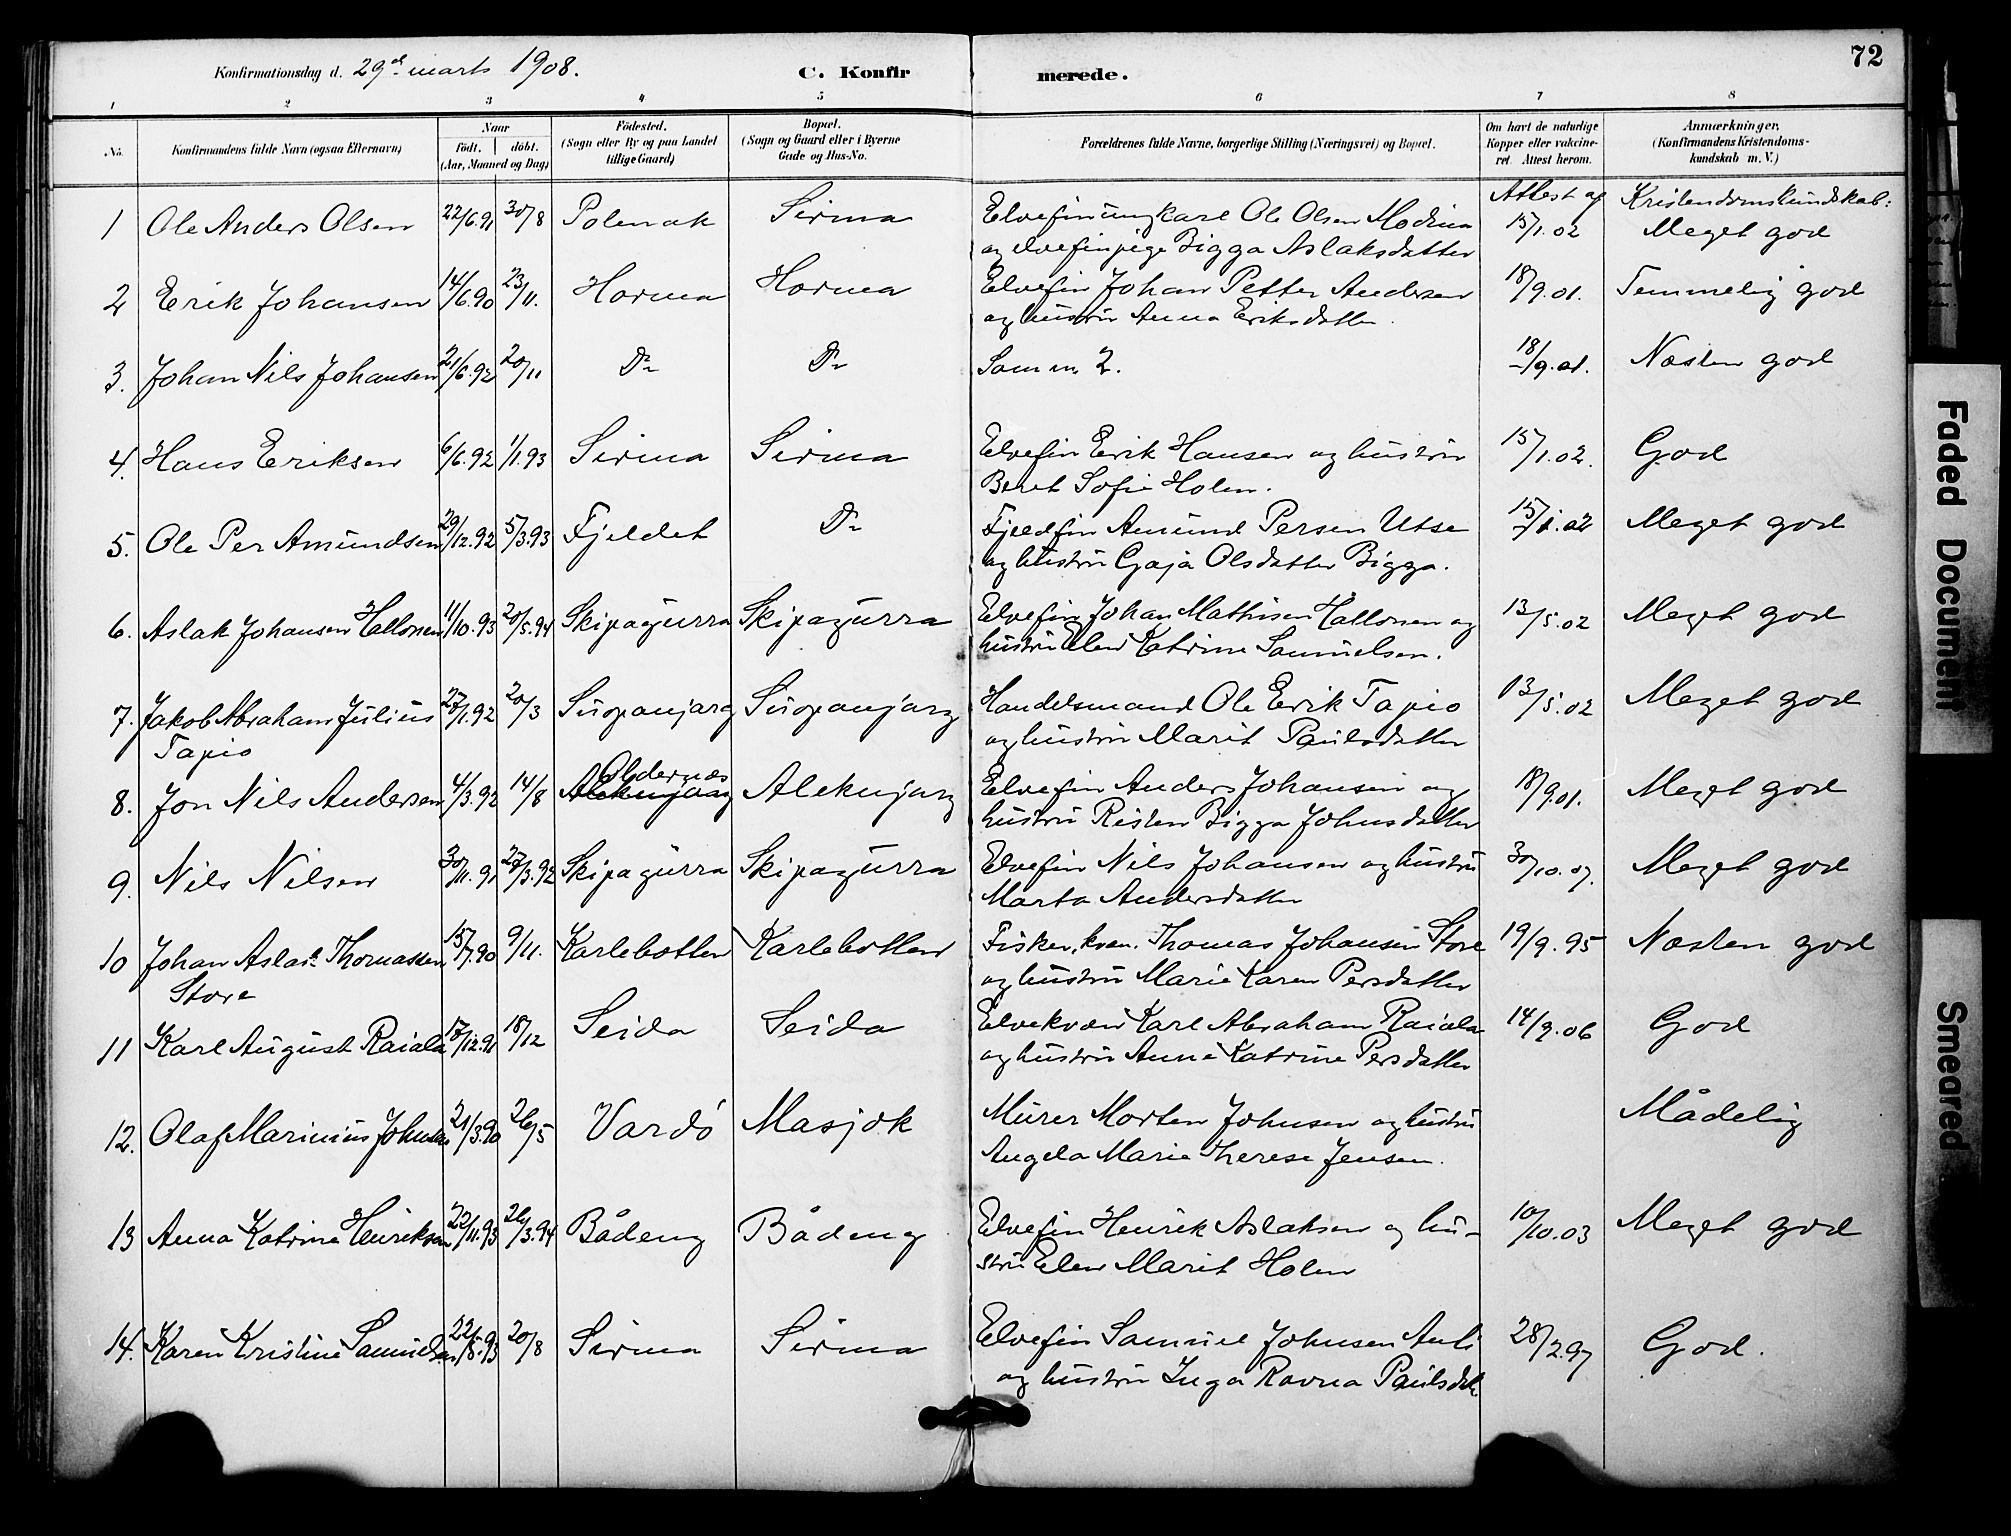 72
Konfirmationsdag d. 29de marts 1908.
C. Konfirmerede.
1 2 3 4 5 6 7 8
No.
Konfirmandens fulde Navn (ogsaa Efternavn)
Naar
født. døbt.
(Aar, Maaned og Dag)
Fødested.
(Sogn eller By og paa Landet
tillige Gaard)
Bopæl.
(Sogn og Gaard eller i Byerne
Gade og Hus-No.
Forældrenes fulde Navne, borgerlige Stilling (Næringsvei) og Bopæl.
Om havt de naturlige
Kopper eller vakcine-
ret. Attest herom.
Anmærkninger.
(Konfirmandens Kristendoms-
kundskab m. V.)
Attest af Kristendomskundskab:
1 Ole Anders Olsen 22/6.91 30/8 Polmak Sirma Elvefinungkarl Ole Olsen Modina 15/1.02 Meget god
og elvefinpige Bigga Aslaksdatter
2 Erik Johansen 14/6.90 23/11. Horma Horma Elvefin Johan Petter Andersen 18/9.01. Temmelig god
og hustru Anna Eriksdatter.
3. Johan Nils Johansen 21/6.92 20/11 Do Do Som nr 2. 18/9.01. Næsten god
4. Hans Eriksen 6/6.92 1/1.93 Sirma Sirma Elvefin Erik Hansen og hustru 15/1.02. God
Beret Sofie Holm.
5. Ole Per Amundsen 29/12.92 5/3.93 Fjeldet Do Fjeldfin Amund Persen Utse 15/1.02 Meget god
og hustru Gaja Olsdatter Bigga.
6. Aslak Johansen Hallonen 11/10.93 20/5.94 Skipagurra Skipagurra Elvefin Johan Mathisen Hallonen og 13/5.02 Meget god
hustru Elen Katrine Samuelsen.
7. Jakob Abraham Julius 27/1.92 20/3 Suopanjarg Suopanjarg Handelsmand Ole Erik Tapio 13/5.02 Meget god
Tapio og hustru Marit Paulsdatter
Oldernæs
8. Jon Nils Andersen 4/3.92 14/8 Aleknjarg Aleknjarg Elvefin Anders Johansen og 18/9.01. Meget god
hustru Risten Bigga Johnsdatter
9. Nils Nilsen 30/11.91 27/3.92 Skipagurra Skipagurra Elvefin Nils Johansen og hustru 30/10.07. Meget god
Marta Andersdatter
10 Johan Aslak Thomassen 15/7.90 9/11. Karlebotten Karlebotten Fisker, kvæn. Thomas Johansen Store 19/9.95 Næsten god
Store og hustru Marie Karen Persdatter
11 Karl August Raiala 17/12.91 18/12 Seida Seida Elvekvæn Karl Abraham Raiala 14/9.06 God
og hustru Anna Katrine Persdatter
12. Olaf Marinius Johnsen 21/3.90 26/5 Vardö Masjok Murer Morten Johnsen og hustru Mådelig
Angela Marie Therese Jensen.
13 Anna Katrine Henriksen 22/11.93 26/3.94 Bådeng Bådeng Elvefin Henrik Aslaksen og hu- 10/10.03 Meget god
stru Elen Marit Holm
14. Karen Kristine Samuelsen 22/5.93 20/8 Sirma Sirma Elvefin Samuel Johnsen Anti 28/2.97 God.
og hustru Inga Ravna Paulsdtr
Faded Document
Smeared